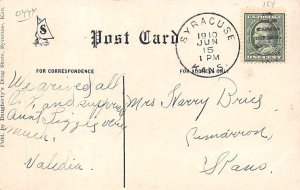 0444
164
S
Post Card
SYRACUSE
1910
JUN
15
1 PM
KANS.
ONE CENT
FOR CORRESPONDENCE
FOR ADDRESS ONLY
Pub. by Daugherty's Drug Store, Syracuse, Kan.
We arrived all
and
Aunt Lizzie very
much.
Valedia.
Mrs Harry Bries
Cimarron
Kans.